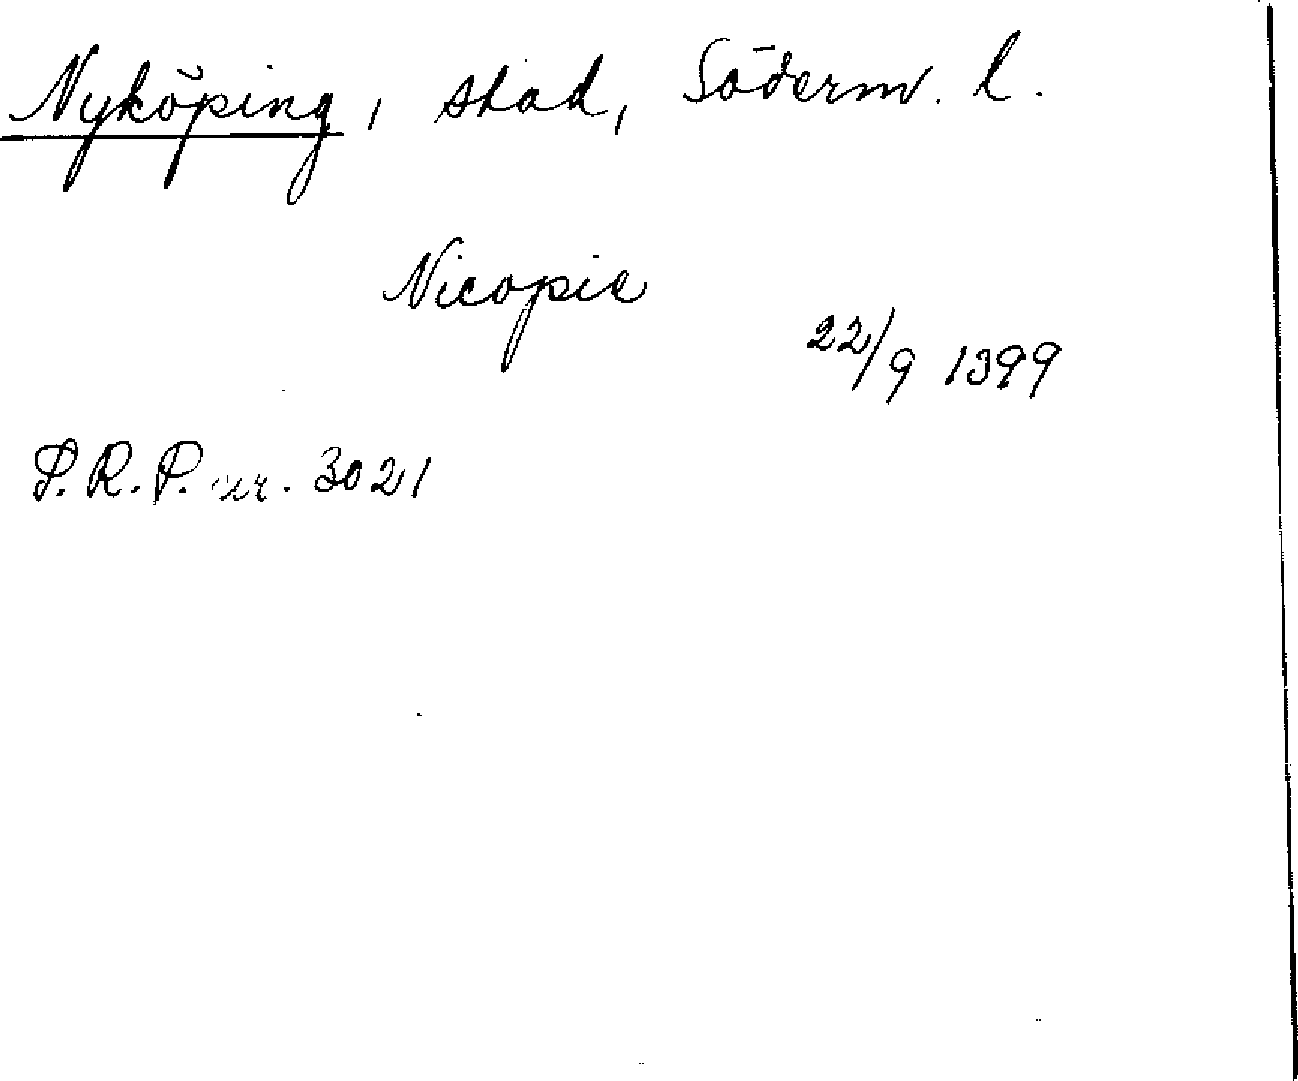 Nyköping, stad, Söderm. l.
Nicopie
22/9 1399
P.R.P. nr. 3021